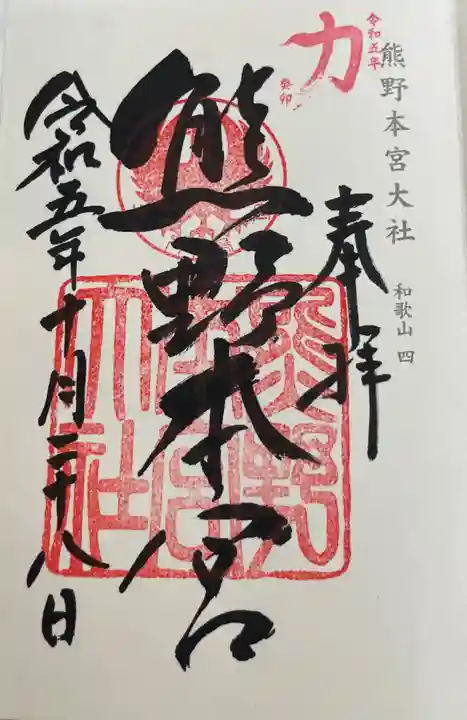 熊野本宮大社 和歌山 四
力
令和五年
癸卯
奉拝
熊野本宮
令和五年十月二十八日
熊野本宮大社